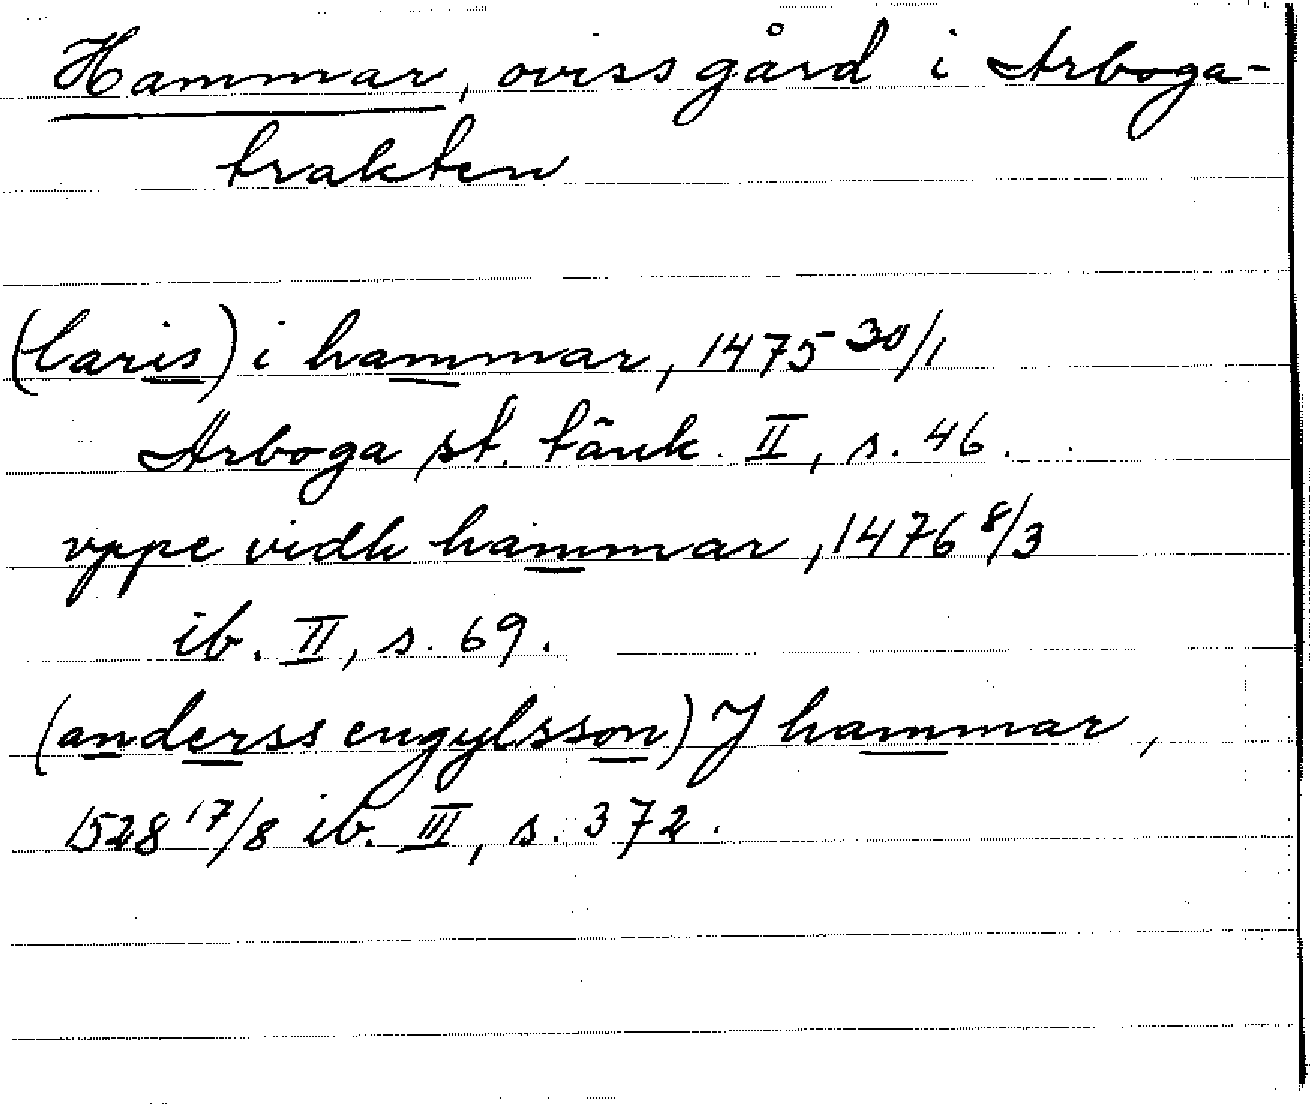 Hammar, oviss gård i Arboga-
trakten
(laris) i hammar, 1475 30/1
Arboga st. tänk. II, s. 46.
vppe vidh hammar, 1476 8/3
ib. II, s. 69.
(anderss engylsson) J hammar,
1528 17/8 ib. III, s. 372.